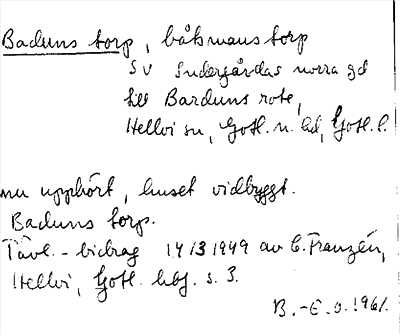 Baduns torp, båtsmanstorp
SV Sudergårdas norra gd
till Barduns rote,
Hellvi sn, Gotl. n. hd, Gotl. l.
nu upphört, huset vidbyggt.
Baduns torp.
Tävl.-bidrag 14/3 1949 av C. Franzén,
Hellvi, Gotl. hbg. s. 3.
B.-E. O. 1961.